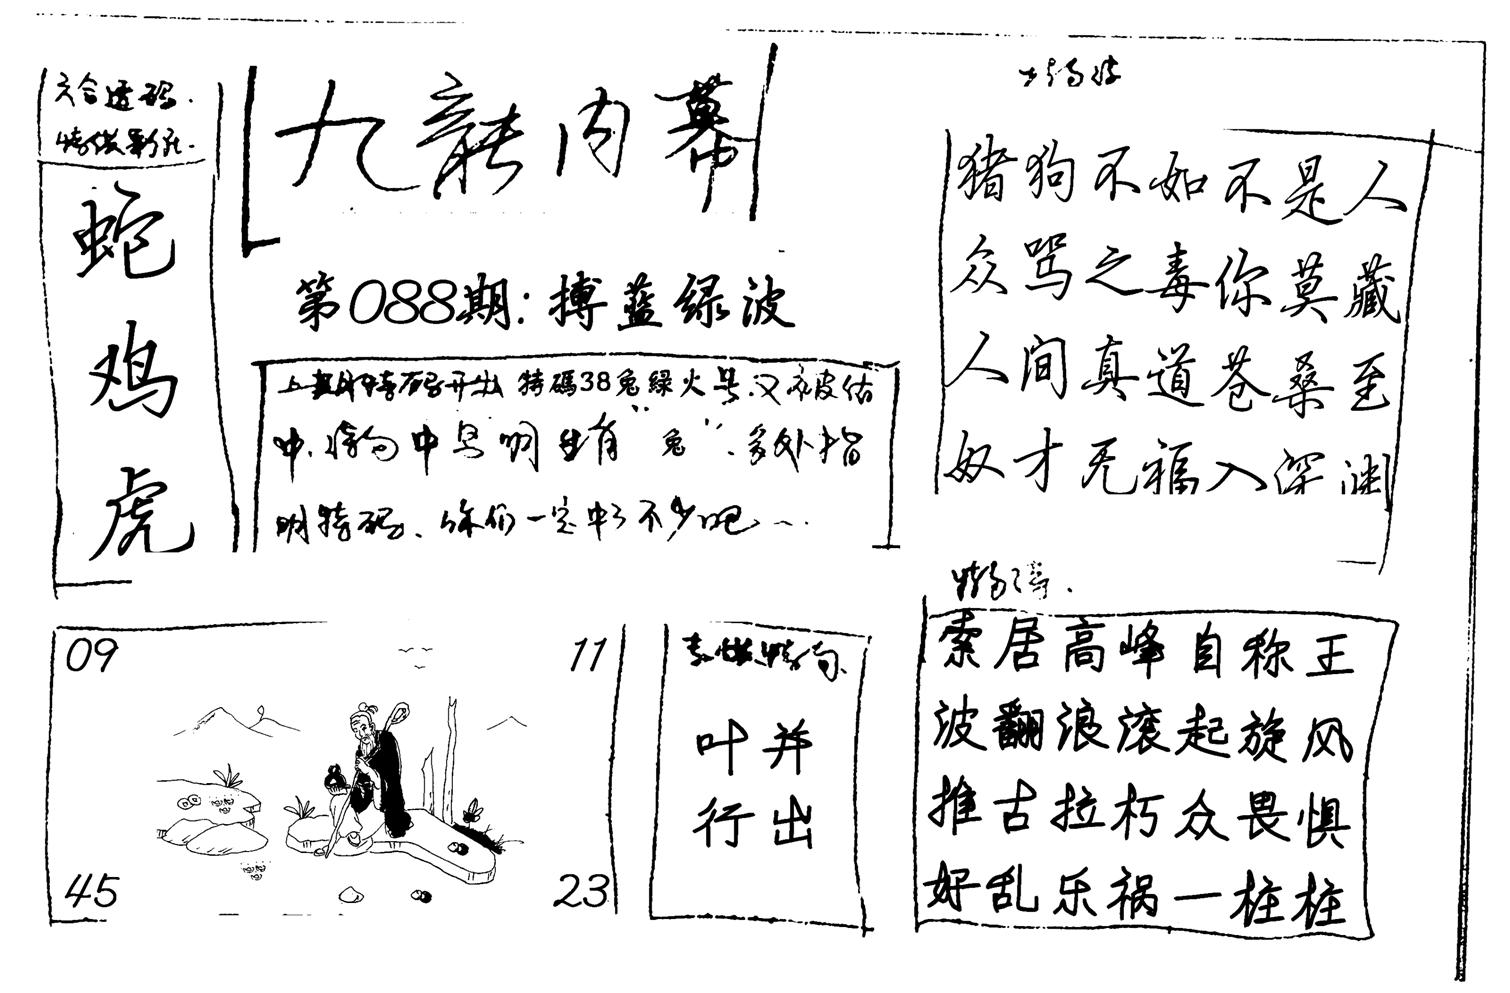 六合透码
蛇
鸡
虎
九龍内幕
第088期:搏蓝绿波
上期特码开出 特碼38兔綠火号.又被估
中.特句中是明. 生肖"兔".多处指
明特码、你们一定中了不少吧
猪狗不如不是人
众骂之毒你莫藏
人间真道苍桑至
奴才无福入深渊
09
11
45
23
叶并
行出
索居高峰自称王
波翻浪滚起旋风
推古拉朽众畏惧
好乱乐祸一柱柱